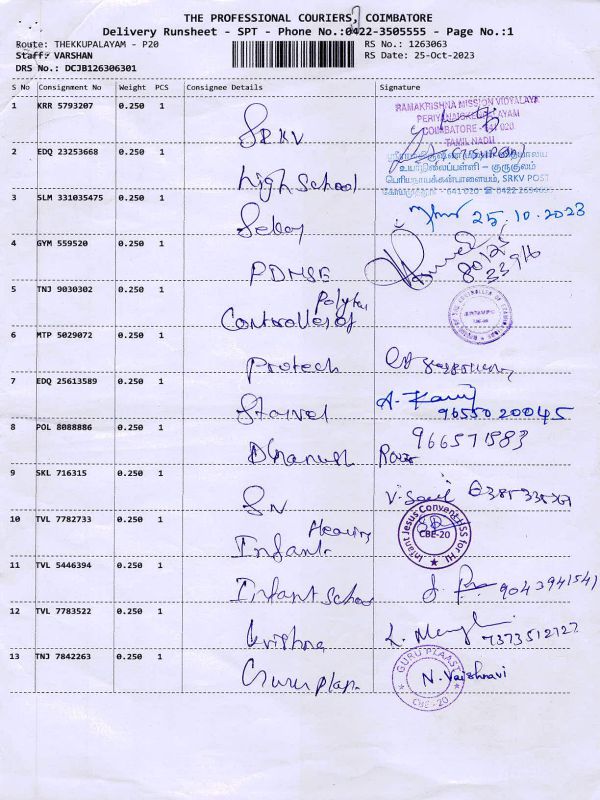 THE PROFESSIONAL COURIERS, COIMBATORE
Delivery Runsheet - SPT - Phone No.:0422-3505555 - Page No.:1
Route: THEKKUPALAYAM - P20
RS No.: 1263063
Staff: VARSHAN
RS Date: 25-Oct-2023
DRS No.: DCJB126306301
S No Consignment No Weight PCS Consignee Details Signature
1 KRR 5793207 0.250 1 SRKV
RAMAKRISHNA MISSION VIDYALAYA
PERIYANAICKENPALAYAM
COIMBATORE - 641 020
TAMIL NADU
2 EDQ 23253668 0.250 1 High School
உயர்நிலைப்பள்ளி - குருகுலம்
பெரியநாயக்கன்பாளையம், SRKV POST
3 SLM 331035475 0.250 1 25.10.2023
4 GYM 559520 0.250 1 PDMSE 80125 33916
5 TNJ 9030302 0.250 1 Controller of
6 MTP 5029072 0.250 1 Protech
7 EDQ 25613589 0.250 1 96550 20045
8 POL 8088886 0.250 1 Dhanush 966571583
9 SKL 716315 0.250 1 SN
10 TVL 7782733 0.250 1 Hearing
Infant
Infant Jesus Convent HSS for HI
CBE-20
11 TVL 5446394 0.250 1 Infant School 9043941541
12 TVL 7783522 0.250 1 Krishna 7373512122
13 TNJ 7842263 0.250 1 Guru plast
GURU PLAAST
N. Vaishnavi
CBE-20